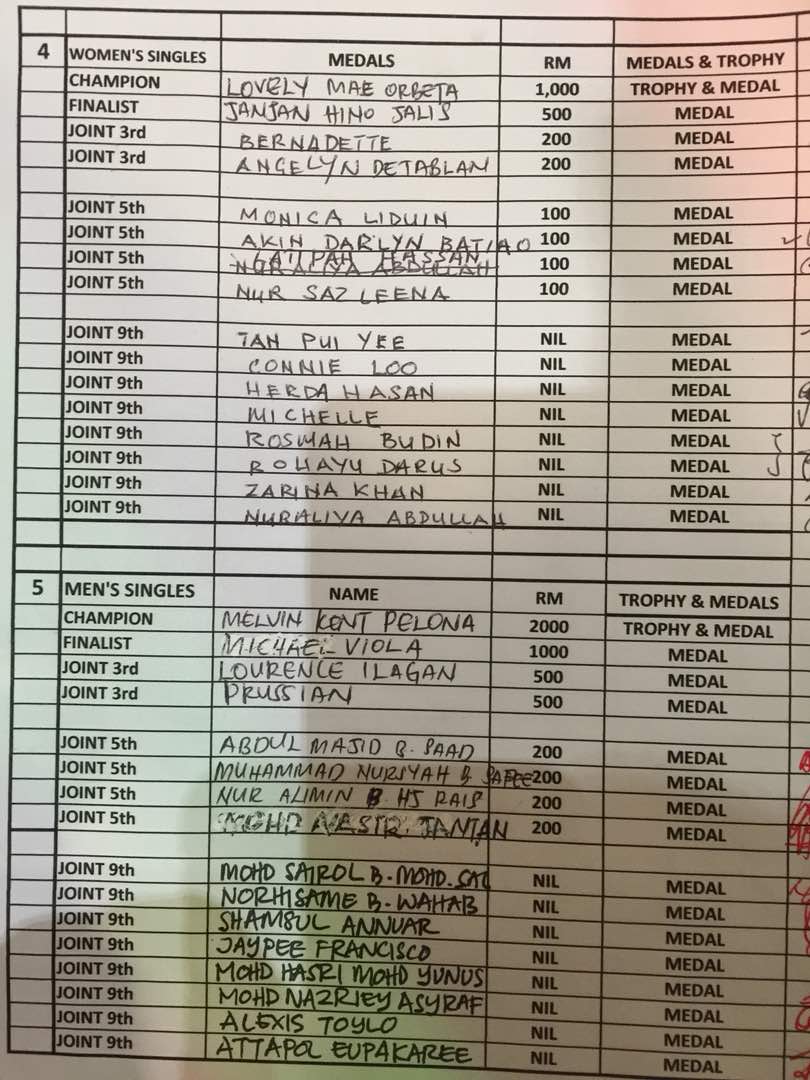 4 WOMEN'S SINGLES MEDALS RM MEDALS & TROPHY
CHAMPION LOVELY MAE ORBETA 1,000 TROPHY & MEDAL
FINALIST JANJAN HINO JALIS 500 MEDAL
JOINT 3rd BERNADETTE 200 MEDAL
JOINT 3rd ANGELYN DETABLAN 200 MEDAL
JOINT 5th MONICA LIDUIN 100 MEDAL
JOINT 5th AKIN DARLYN BATIAO 100 MEDAL
JOINT 5th HASSAN NURALIYA ABDULLAH 100 MEDAL
JOINT 5th NUR SAZLEENA 100 MEDAL
JOINT 9th TAN PUI YEE NIL MEDAL
JOINT 9th CONNIE LOO NIL MEDAL
JOINT 9th HERDA HASAN NIL MEDAL
JOINT 9th MICHELLE NIL MEDAL
JOINT 9th ROSMAH BUDIN NIL MEDAL
JOINT 9th ROHAYU DARUS NIL MEDAL
JOINT 9th ZARINA KHAN NIL MEDAL
JOINT 9th NURALIYA ABDULLAH NIL MEDAL
5 MEN'S SINGLES NAME RM TROPHY & MEDALS
CHAMPION MELVIN KENT PELONA 2000 TROPHY & MEDAL
FINALIST MICHAEL VIOLA 1000 MEDAL
JOINT 3rd LOURENCE ILAGAN 500 MEDAL
JOINT 3rd PRUSSIAN 500 MEDAL
JOINT 5th ABDUL MAJID B. SAAD 200 MEDAL
JOINT 5th MUHAMMAD NURSYAH B 200 MEDAL
JOINT 5th NUR ALIMIN B. HJ RAIS 200 MEDAL
JOINT 5th MOHD NASIR JANTAN 200 MEDAL
JOINT 9th MOHD SAIROL B. MOHD. NIL MEDAL
JOINT 9th NORHISAME B. WAHAB NIL MEDAL
JOINT 9th SHAMSUL ANNUAR NIL MEDAL
JOINT 9th JAYPEE FRANCISCO NIL MEDAL
JOINT 9th MOHD HASRI MOHD YUNUS NIL MEDAL
JOINT 9th MOHD NAZRIEY ASYRAF NIL MEDAL
JOINT 9th ALEXIS TOYLO NIL MEDAL
JOINT 9th ATTAPOL EUPAKAREE NIL MEDAL